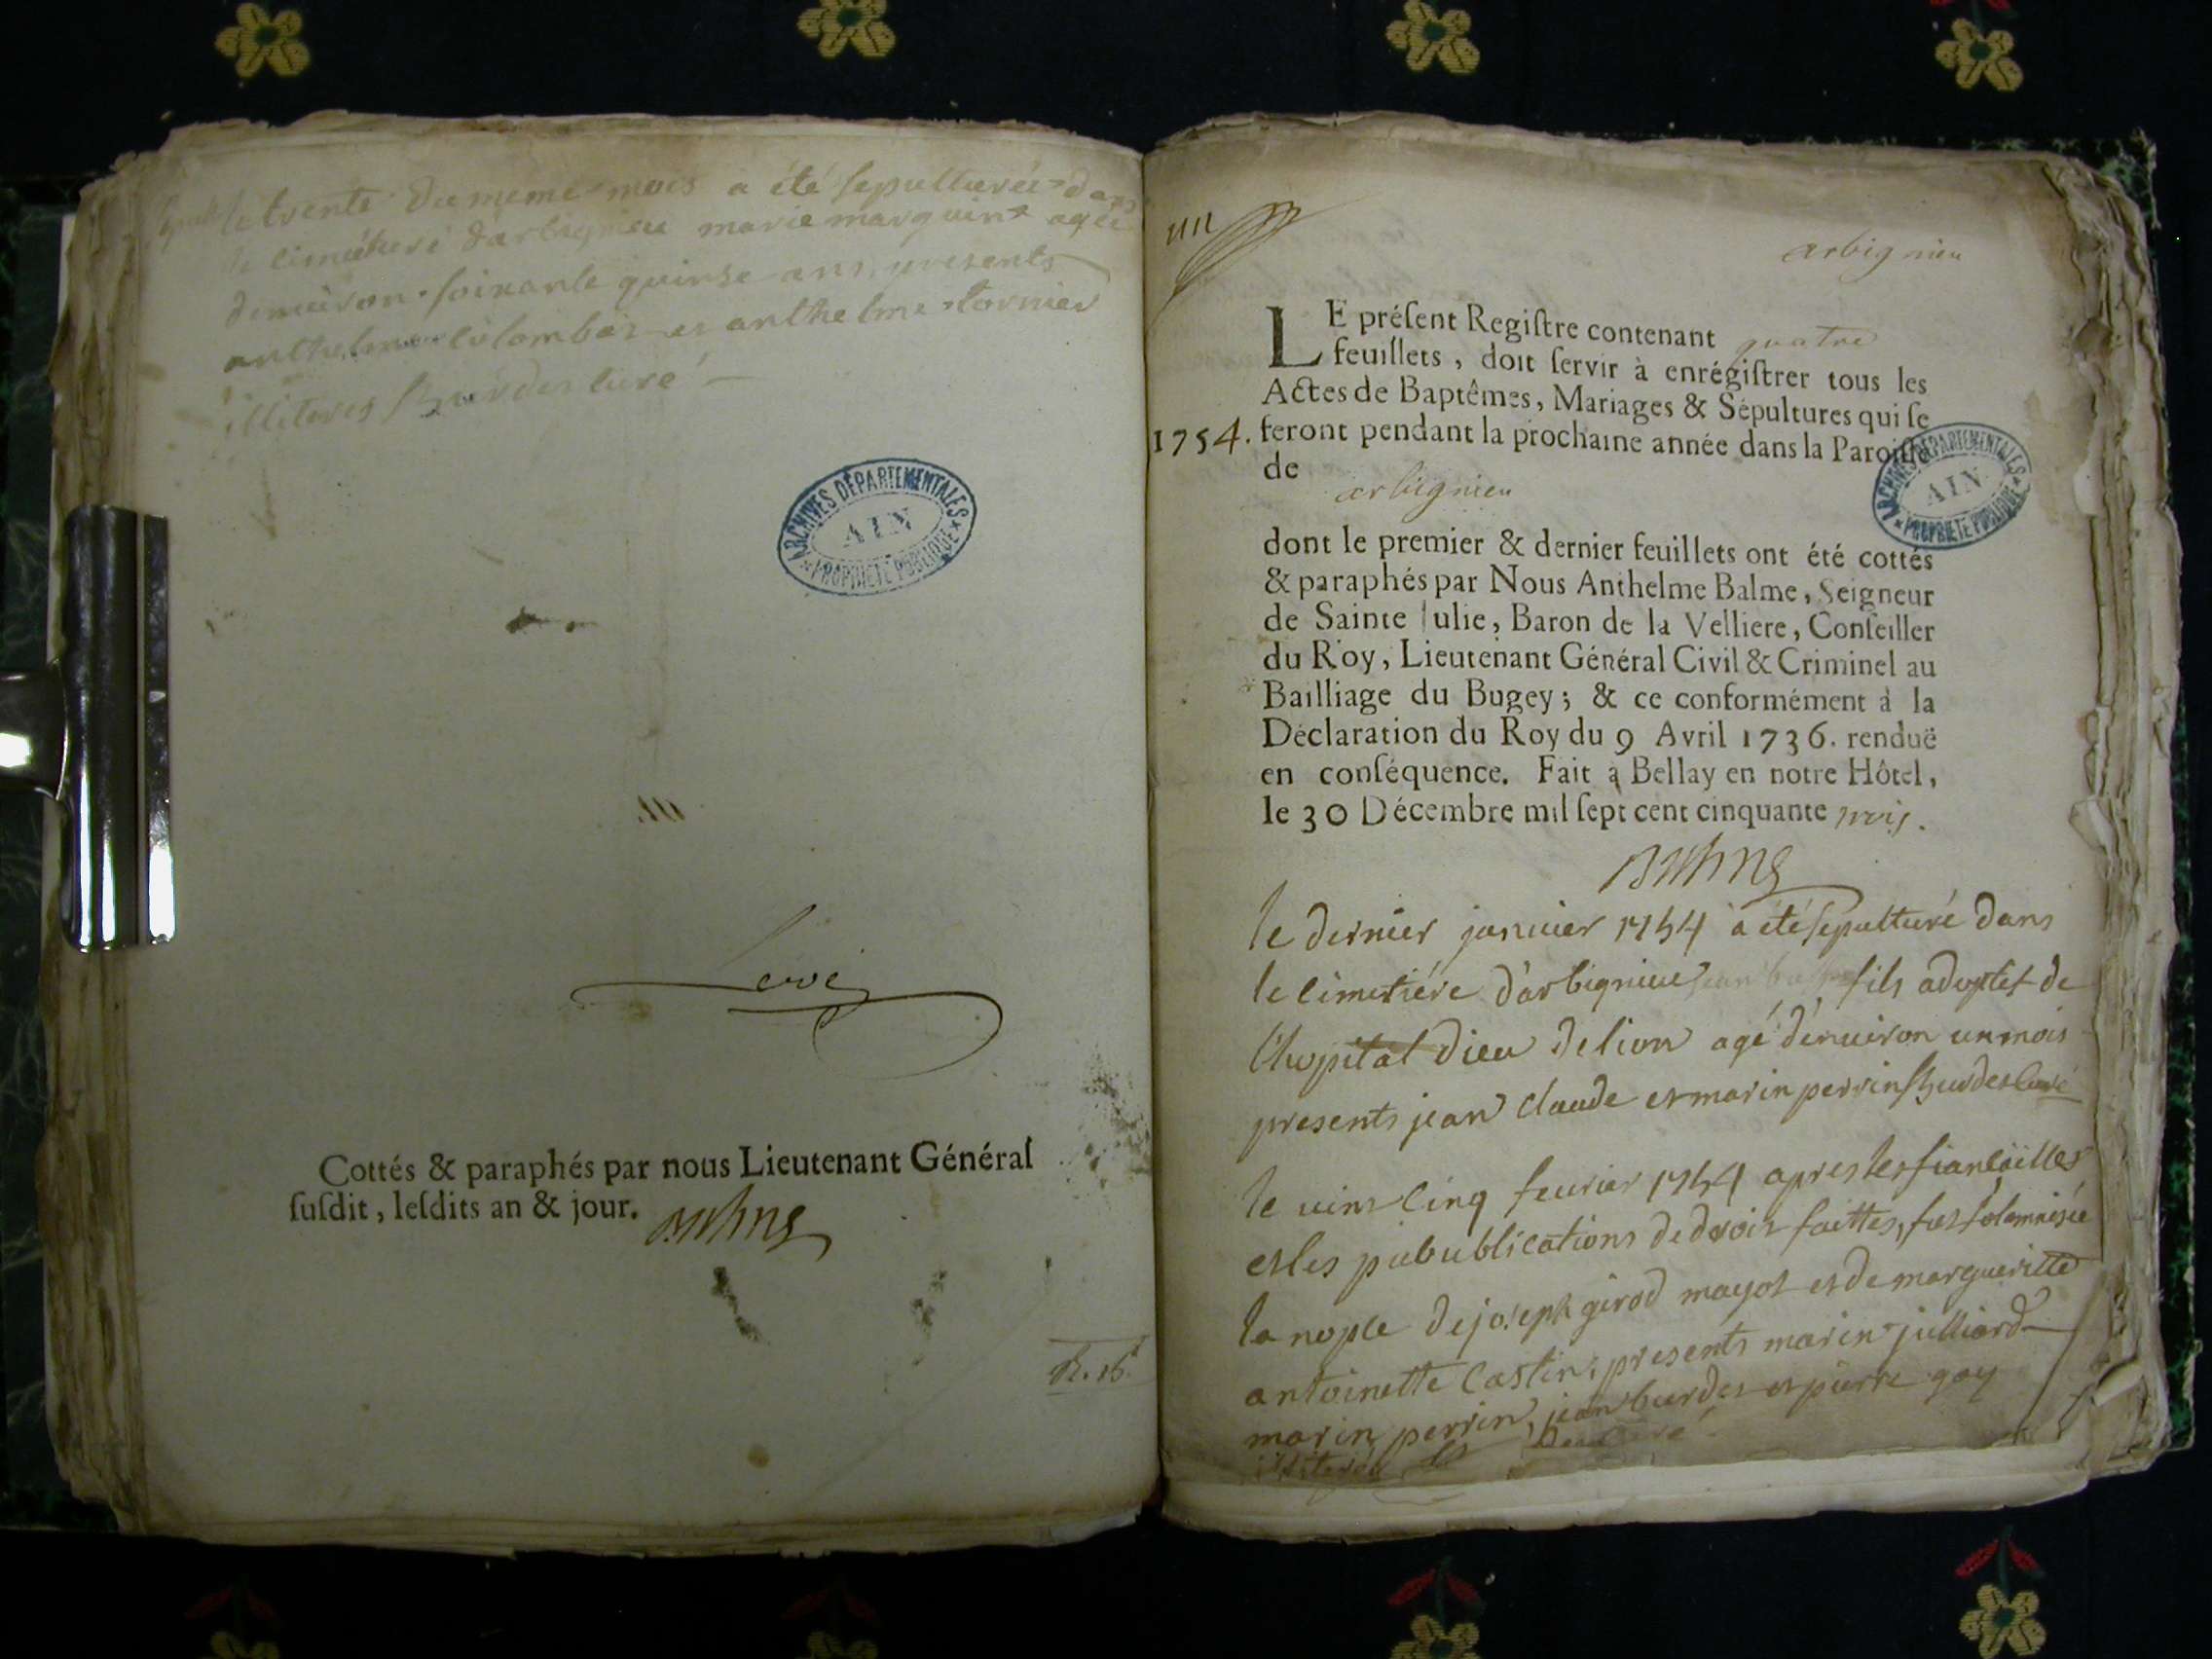 le trente du meme mois a été sepulturée dans
le cimetiere d'arbignieu marie marguin agée
d'environ soixante quinse ans, presents
anthelme colombat et anthelme tornier
illiteres Burdet curé
ARCHIVES DÉPARTEMENTALES
AIN
* PROPRIÉTÉ PUBLIQUE *
Cottés & paraphés par nous Lieutenant Général
ſuſdit, leſdits an & jour.
un
arbignieu
LE préſent Regiſtre contenant quatre
feuillets, doit ſervir à enrégiſtrer tous les
Actes de Baptêmes, Mariages & Sépultures qui ſe
1754. feront pendant la prochaine année dans la Paroiſſe
de arbignieu
ARCHIVES DÉPARTEMENTALES
AIN
* PROPRIÉTÉ PUBLIQUE *
dont le premier & dernier feuillets ont été cottés
& paraphés par Nous Anthelme Balme, Seigneur
de Sainte Julie, Baron de la Velliere, Conſeiller
du Roy, Lieutenant Général Civil & Criminel au
Bailliage du Bugey; & ce conformément à la
Déclaration du Roy du 9 Avril 1736. renduë
en conſéquence. Fait à Bellay en notre Hôtel,
le 30 Décembre mil ſept cent cinquante trois.
le dernier januier 1754 a été sepulturé dans
le cimetiére d'arbignieu fils adoptif de
l'hopital dieu de lion agé d'enuiron un mois
presents jean claude et marin perrin Burdet curé
le uint cinq feurier 1754 apres les fiancailles
et les pubublications de droit faittes, fut solemnisée
la nopce de joseph girod mayot et de margueritte
antoinette castin, presents marin julliard
marin perrin, jean burdet et pierre gay
illiteres